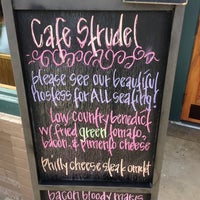 Cafe Strudel
please see our beautiful
hostess for ALL seating!
low country benedict
w/ fried green tomato,
bacon, & pimento cheese
Philly cheese steak omelet
bacon bloody marys